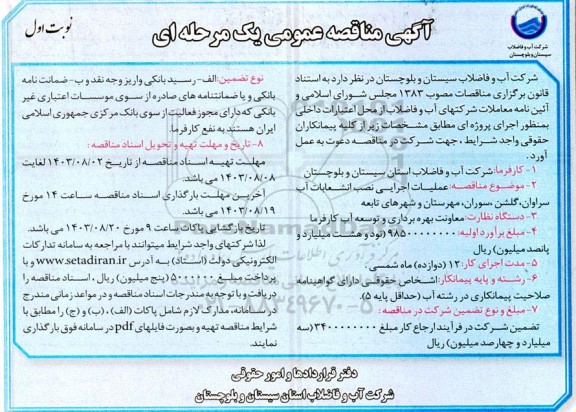 آگهی مناقصه عمومی یک مرحله ای
نوبت اول
شرکت آب و فاضلاب
سیستان و بلوچستان
شرکت آب و فاضلاب سیستان و بلوچستان در نظر دارد به استناد
قانون برگزاری مناقصات مصوب ۱۳۸۳ مجلس شورای اسلامی و
آئین نامه معاملات شرکتهای آب و فاضلاب، از محل اعتبارات داخلی
بمنظور اجرای پروژه ای مطابق مشخصات زیر از کلیه پیمانکاران
حقوقی واجد شرایط ، جهت شرکت در مناقصه دعوت به عمل
آورد.
۱- کارفرما: شرکت آب و فاضلاب استان سیستان و بلوچستان
۲- موضوع مناقصه: عملیات اجرایی نصب انشعابات آب
سراوان، گلشن، سوران، مهرستان و شهرهای تابعه
۳- دستگاه نظارت: معاونت بهره برداری و توسعه آب کارفرما
۴- مبلغ برآورد اولیه: ۹۸۵۰۰۰۰۰۰۰۰ (نود و هشت میلیارد و
پانصد میلیون) ریال
۵- مدت اجرای کار: ۱۲ (دوازده) ماه شمسی.
۶- رشته و پایه پیمانکار: اشخاص حقوقی دارای گواهینامه
صلاحیت پیمانکاری در رشته آب (حداقل پایه ۵).
۷- مبلغ و نوع تضمین شرکت در مناقصه:
تضمین شرکت در فرآیند ارجاع کار مبلغ ۳۴۰۰۰۰۰۰۰۰ (سه
میلیارد و چهارصد میلیون) ریال
نوع تضمین: الف- رسید بانکی واریز وجه نقد و ب- ضمانت نامه
بانکی و یا ضمانتنامه های صادره از سوی موسسات اعتباری غیر
بانکی که دارای مجوز فعالیت از سوی بانک مرکزی جمهوری اسلامی
ایران هستند به نفع کارفرما.
۸- تاریخ و مهلت تهیه و تحویل اسناد مناقصه:
مهلت تهیه اسناد مناقصه از تاریخ ۱۴۰۳/۰۸/۰۲ لغایت
۱۴۰۳/۰۸/۰۸ می باشد.
آخرین مهلت بارگذاری اسناد مناقصه ساعت ۱۴ مورخ
۱۴۰۳/۰۸/۱۹ می باشد.
تاریخ بازگشایی پاکات ساعت ۹ مورخ ۱۴۰۳/۰۸/۲۰ می باشد.
لذا شرکتهای واجد شرایط میتوانند با مراجعه به سامانه تدارکات
الکترونیکی دولت (استاد) به آدرس www.setadiran.ir و با
پرداخت مبلغ ۵۰۰۰۰۰۰ (پنج میلیون) ریال ، اسناد مناقصه را
دریافت و با توجه به مندرجات اسناد مناقصه و در مواعد زمانی مندرج
در سامانه، مدارک لازم شامل پاکات (الف) ، (ب) و (ج) را مطابق با
شرایط مناقصه تهیه و بصورت فایلهای pdf در سامانه فوق بارگذاری
نمایند.
دفتر قراردادها و امور حقوقی
شرکت آب و فاضلاب استان سیستان و بلوچستان